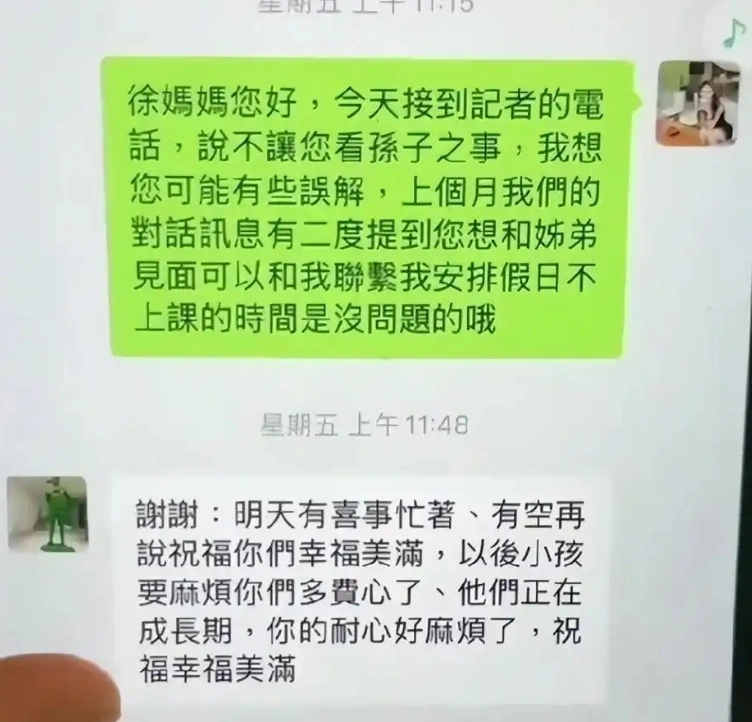 星期五 上午 11:15
徐媽媽您好，今天接到記者的電
話，說不讓您看孫子之事，我想
您可能有些誤解，上個月我們的
對話訊息有二度提到您想和姊弟
見面可以和我聯繫我安排假日不
上課的時間是沒問題的哦
星期五 上午 11:48
謝謝：明天有喜事忙著、有空再
說祝福你們幸福美滿，以後小孩
要麻煩你們多費心了、他們正在
成長期，你的耐心好麻煩了，祝
福幸福美滿